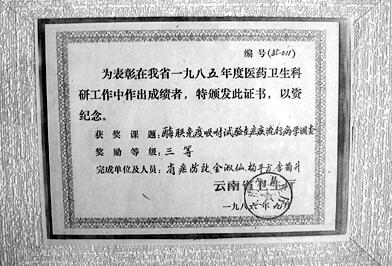 编号(85-011)
为表彰在我省一九八五年度医药卫生科
研工作中作出成绩者，特颁发此证书，以资
纪念。
获奖课题：酶联免疫吸附试验在疟疾流行病学调查
奖励等级：三等
完成单位及人员：省疟防所金淑仙、杨平方、李菊升
云南省卫生厅
一九八六年